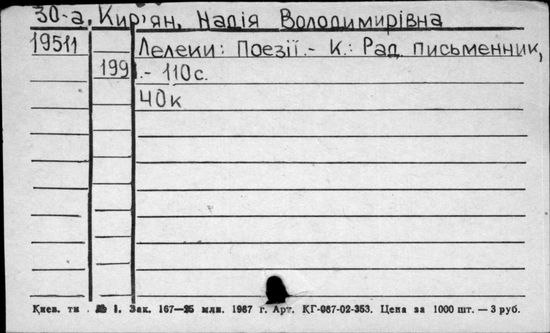 30-а, Кир'ян, Надія Володимирівна
19511 Лелеки: Поезії.- К.: Рад. письменник,
199 1.- 110с.
40к
Киев. ти . № 1. Зак. 167—25 млн. 1987 г. Арт. КГ-087-02-353. Цена за 1000 шт. — 3 руб.